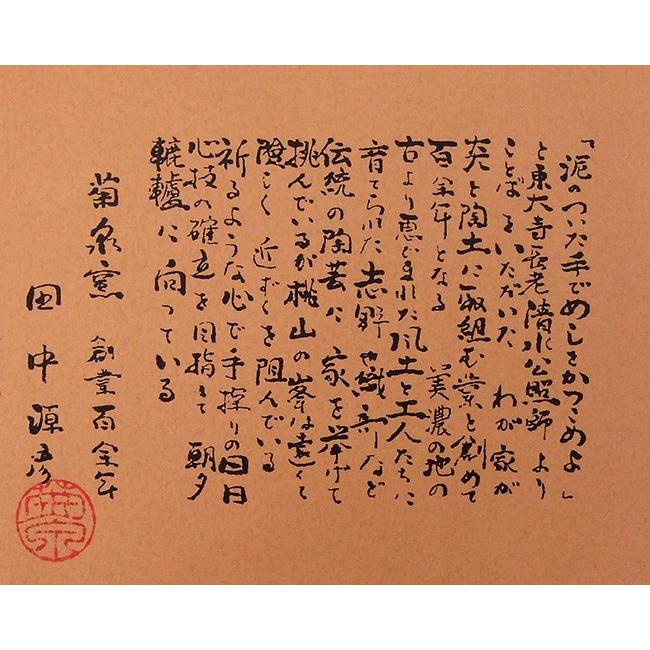 「泥のついた手でめしをかっこめよ」
と東大寺長老清水公照師より
ことばをいただいた　わが家が
炎と陶土に取組む業を創めて
百余年となる　美濃の地の
古より恵まれた風土と工人たちに
育てられた志野や織部など
伝統の陶芸に　家を挙げて
挑んでいるが桃山の峯は遠くて
険しく　近ずくを阻んでいる
祈るような心で手探りの日日
心技の確立を目指して　朝夕
轆轤に向っている
菊泉窯　創業百余年
田中源彦